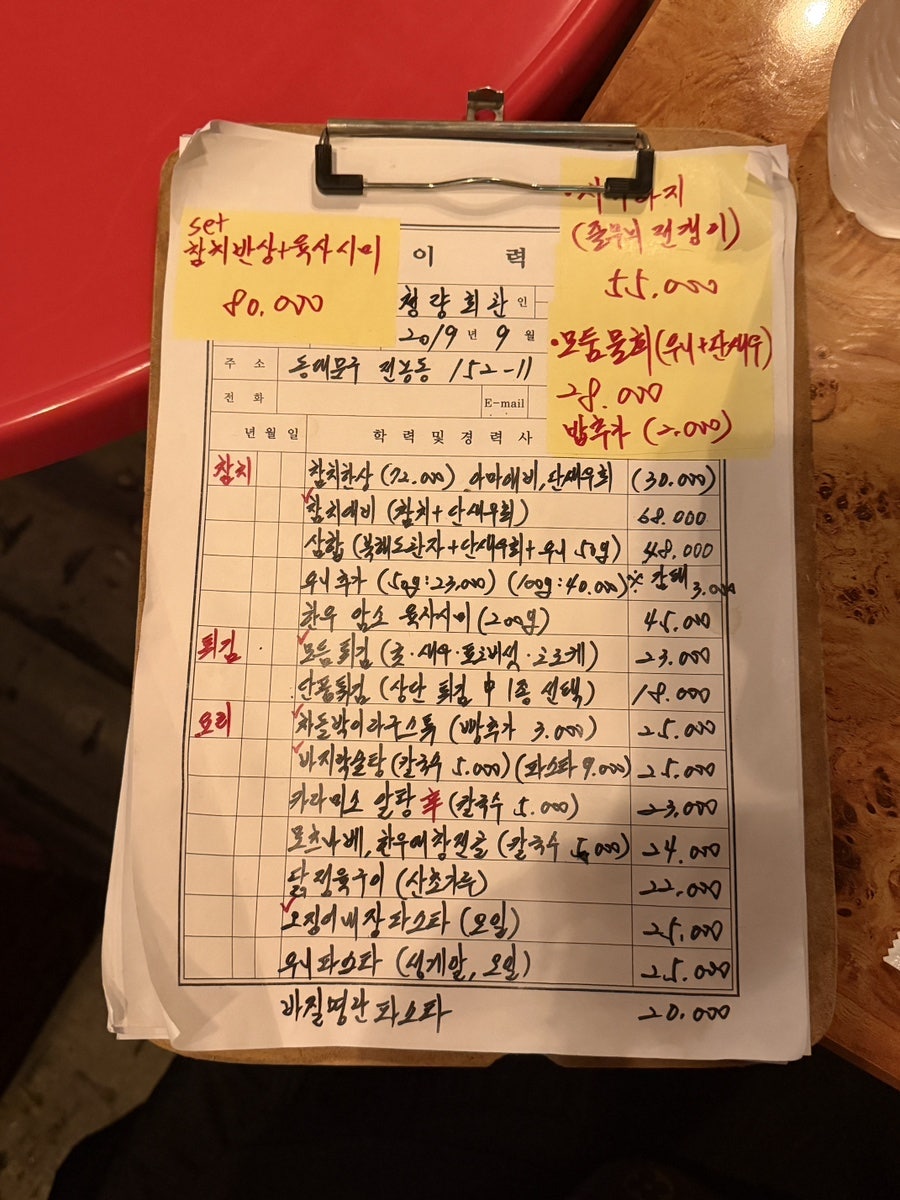 set
참치반상+육사시미
80.000
(줄무늬 전갱이)
55.000
·모둠물회(우니+단새우)
28.000
밥추가 (2.000)
이 력
청량회관 인
2019 년 9 월
주 소 동대문구 전농동 152-11
전 화 E-mail
년 월 일 학 력 및 경 력 사
참치 참치한상 (72.000) 아마에비, 단새우회 (30.000)
참치에비 (참치+단새우회) 68.000
삼합 (북해도관자+단새우회+우니 50g) 48.000
우니추가 (50g:23,000) (100g:40.000) ※ 감태 3.000
한우 암소 육사시미 (200g) 45.000
튀김 모듬튀김 (굿·새우·표고버섯·고로케) 23.000
단품튀김 (상단 튀김 中 1종 선택) 18.000
요리 차돌박이라구스튜 (빵추가 3.000) 25.000
바지락술탕 (칼국수 5.000) (파스타 9.000) 25.000
카라미소 알탕 辛 (칼국수 5.000) 23.000
모츠나베, 한우대창전골 (칼국수 5.000) 24.000
닭정육구이 (산초가루) 22.000
오징어내장파스타 (오일) 25.000
우니파스타 (성게알, 오일) 25.000
바질명란파스타 20.000